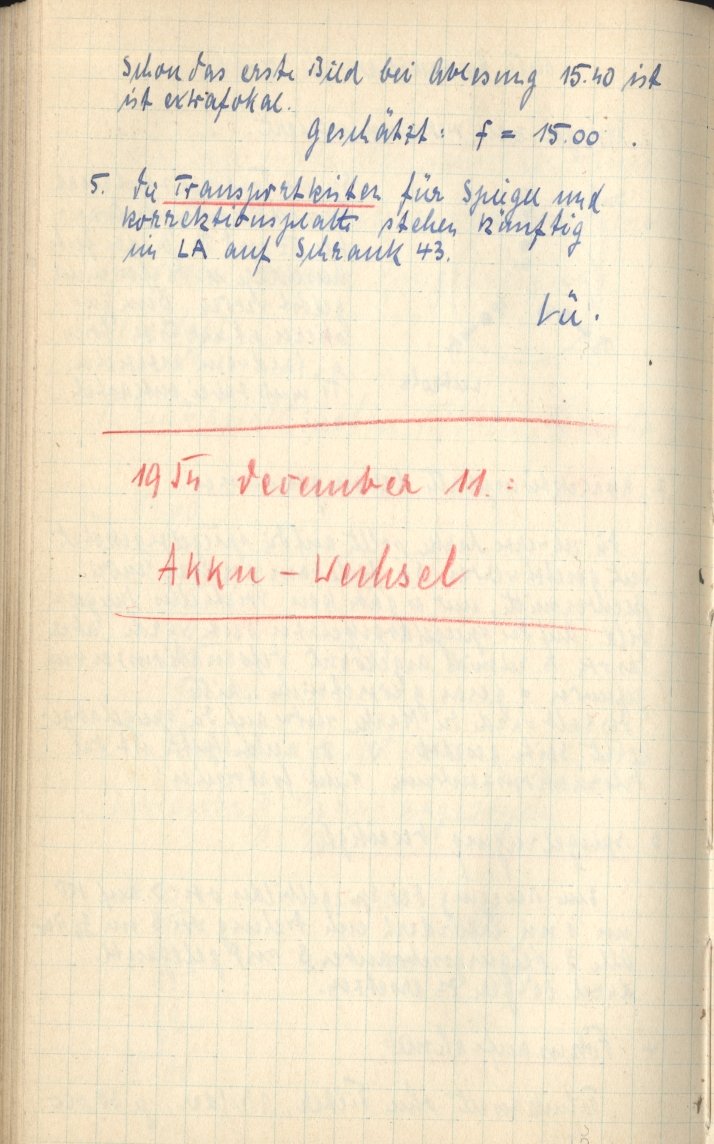 Schon das erste Bild bei Ablesung 15.40 ist
ist extrafokal.
Geschätzt: f = 15.00.
5. Die Transportkisten für Spiegel und
Korrektionsplatte stehen künftig
im LA auf Schrank 43.
Lü.
1954 December 11.:
Akku-Wechsel